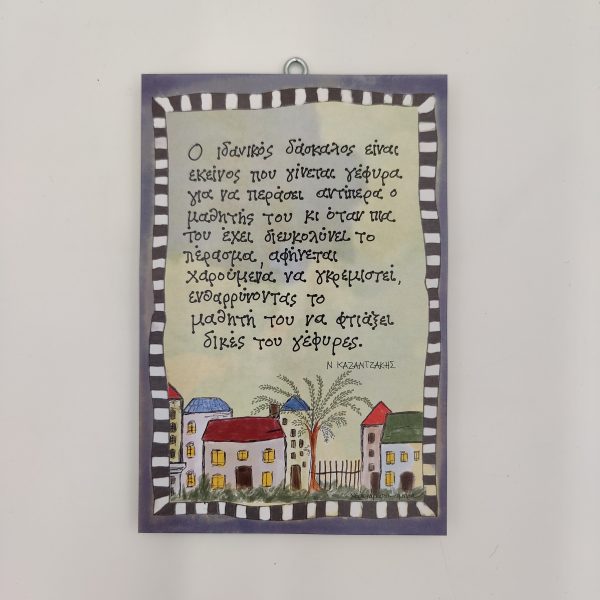 Ο ιδανικός δάσκαλος είναι
εκείνος που γίνεται γέφυρα
για να περάσει αντίπερα ο
μαθητής του κι όταν πια
του έχει διευκολύνει το
πέρασμα, αφήνεται
χαρούμενα να γκρεμιστεί,
ενθαρρύνοντας το
μαθητή του να φτιάξει
δικές του γέφυρες.
Ν ΚΑΖΑΝΤΖΑΚΗΣ